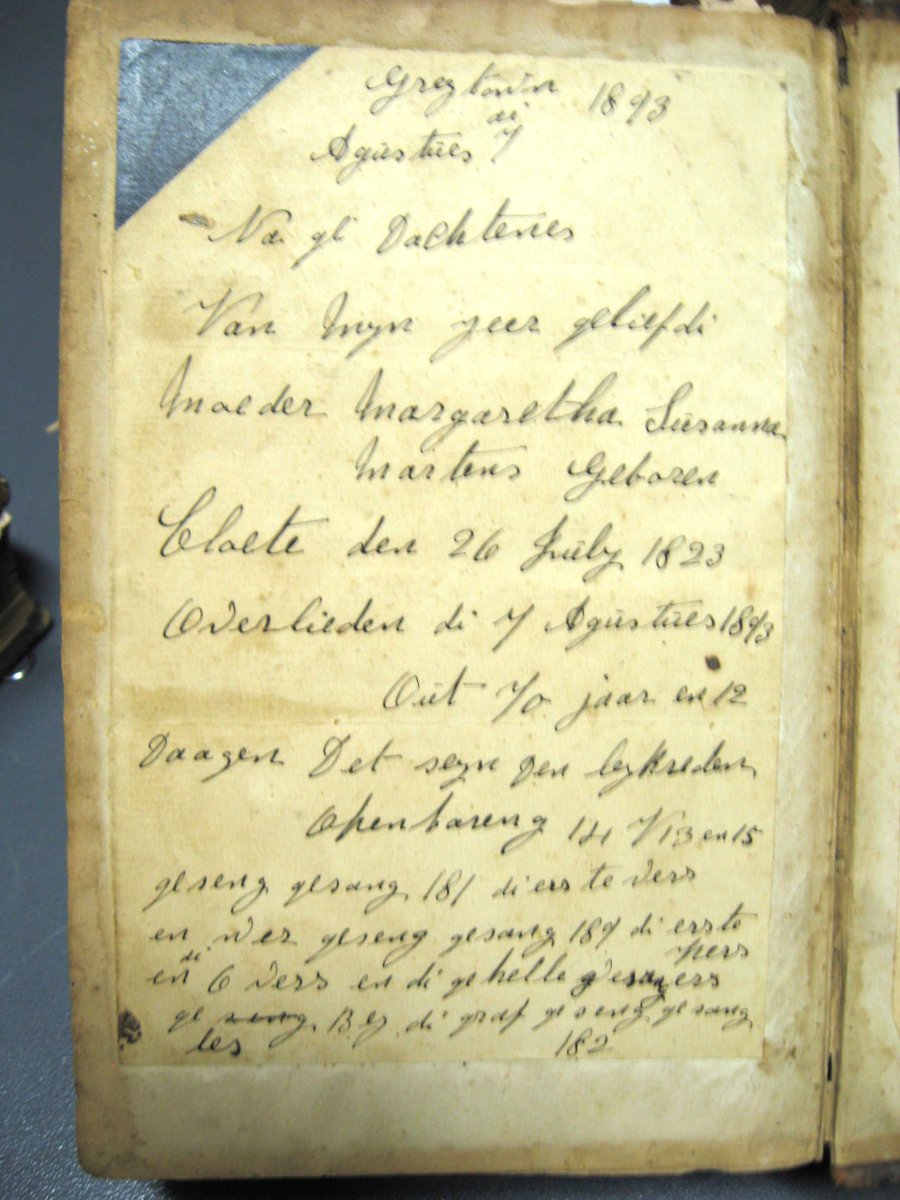 Greytown 1893
di
Agustues 7
Na gi Dachtenes
Van Myn zeer geliefdi
Moeder Margaretha Susanna
Martens Geboren
Cloete den 26 July 1823
Overlieden di 7 Agustues 1893
Out 70 jaar en 12
Daagen Det seyn den leykreden
Openbareng 14 V 13 en 15
geseng gesang 181 di erste vers
en wer geseng gesang 189 di erste
vers
di
en 6 vers en di gehelle
ge seng Bey di graf geseng gesang
les 182